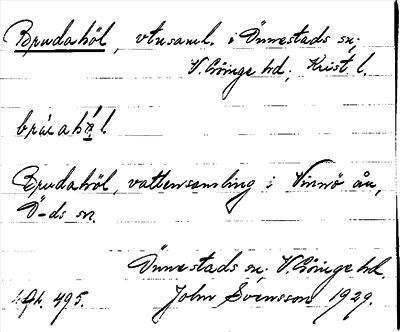 Brudahöl, vtnsaml. i Önnestads sn;
V. Göinge hd; Krist l.
Brudahöl, vattensamling i Vinnö ån,
Ö-ds sn.
Önnestads sn. V. Göinge hd.
495. John Svensson 1929.